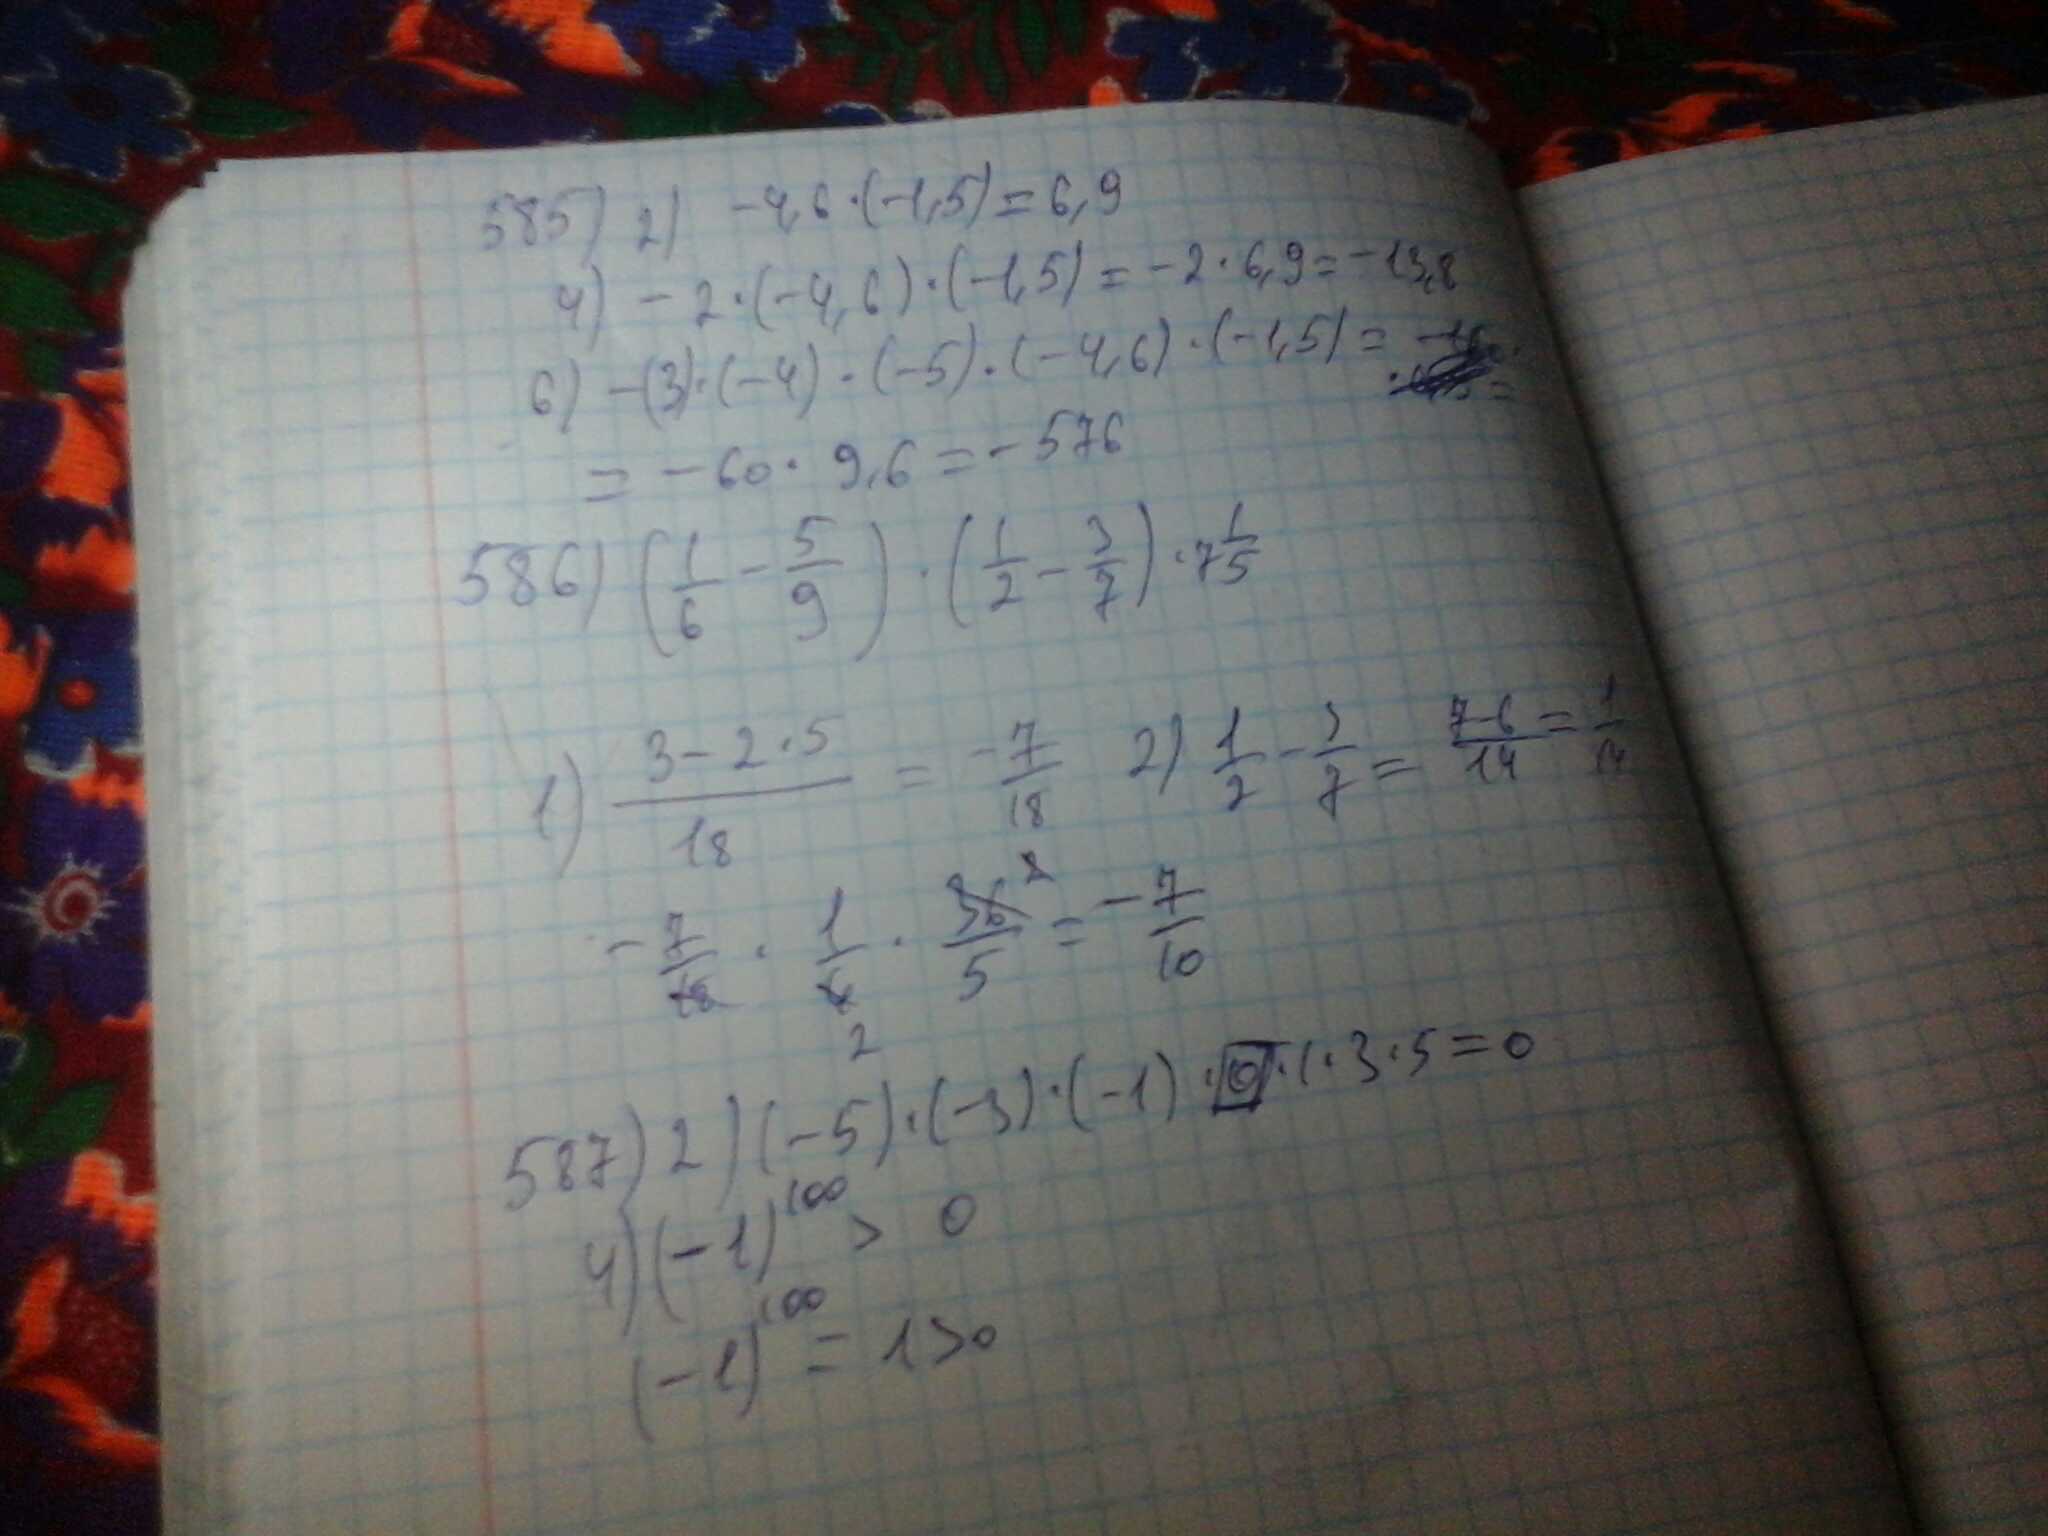 585) 2) -4,6·(-1,5)=6,9
4) -2·(-4,6)·(-1,5)=-2·6,9=-13,8
6) -(3)·(-4)·(-5)·(-4,6)·(-1,5)=
= -60·9,6=-576
586) (1/6 - 5/9)·(1/2 - 3/7)·7 1/5
1) (3-2·5)/18 = -7/18 2) 1/2 - 3/7 = (7-6)/14 = 1/14
-7/18 · 1/ · 36/5 = -7/10
2
587) 2) (-5)·(-3)·(-1)·0·1·3·5=0
4) (-1)^100 > 0
(-1)^100 = 1>0